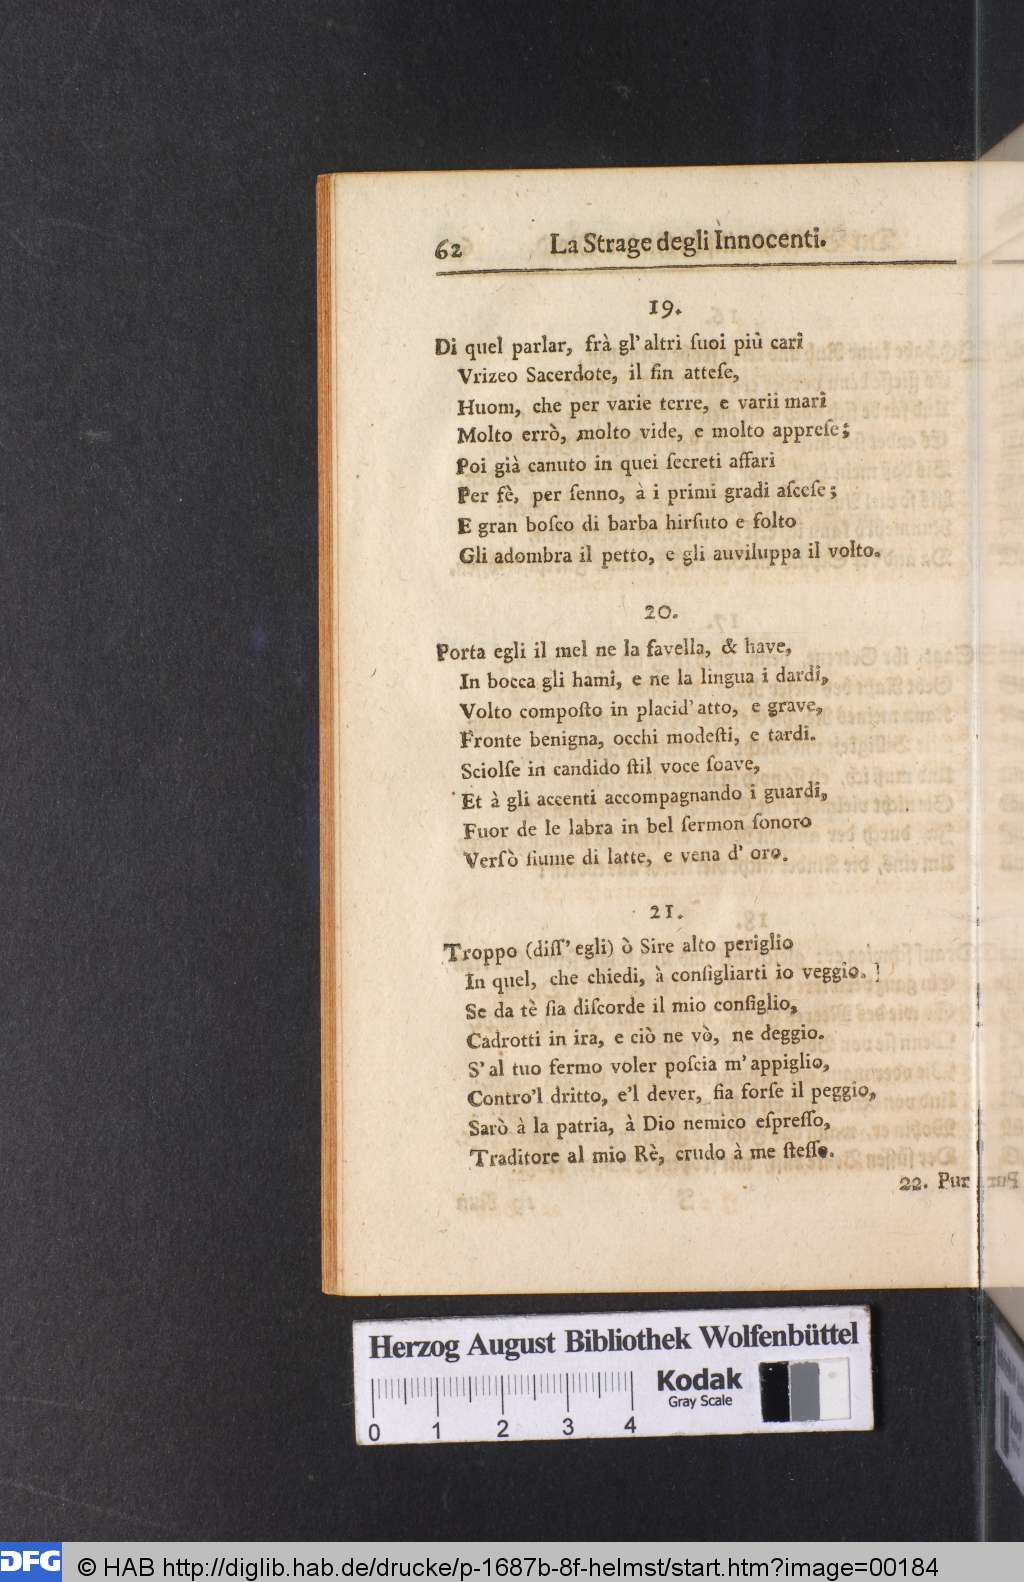 62 La Strage degli Innocenti.
19.
Di quel parlar, frà gl' altri ſuoi più cari
Vrizeo Sacerdote, il fin atteſe,
Huom, che per varie terre, e varii mari
Molto errò, molto vide, e molto appreſe;
Poi già canuto in quei ſecreti affari
Per fè, per ſenno, à i primi gradi aſceſe;
E gran boſco di barba hirſuto e folto
Gli adombra il petto, e gli auviluppa il volto.
20.
Porta egli il mel ne la favella, & have,
In bocca gli hami, e ne la lingua i dardi,
Volto compoſto in placid' atto, e grave,
Fronte benigna, occhi modeſti, e tardi.
Sciolſe in candido ſtil voce ſoave,
Et à gli accenti accompagnando i guardi,
Fuor de le labra in bel ſermon ſonoro
Verſò fiume di latte, e vena d' oro.
21.
Troppo (diſſ' egli) ò Sire alto periglio
In quel, che chiedi, à conſigliarti io veggio.
Se da tè ſia diſcorde il mio conſiglio,
Cadrotti in ira, e ciò ne vò, ne deggio.
S' al tuo fermo voler poſcia m' appiglio,
Contro'l dritto, e'l dever, fia forſe il peggio,
Sarò à la patria, à Dio nemico eſpreſſo,
Traditore al mio Rè, crudo à me ſteſſo.
22. Pur
Herzog August Bibliothek Wolfenbüttel
Kodak
Gray Scale
0 1 2 3 4
DFG © HAB http://diglib.hab.de/drucke/p-1687b-8f-helmst/start.htm?image=00184